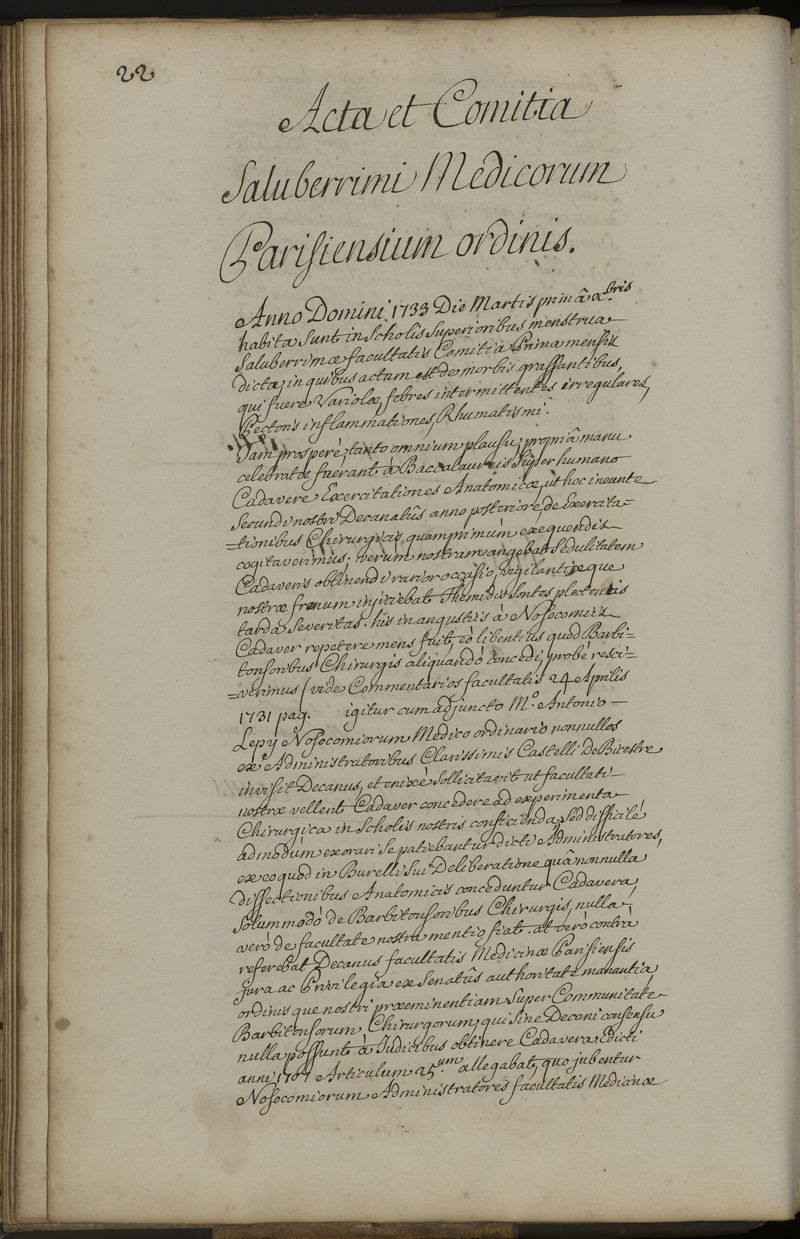 22
Acta et Comitia
Saluberrimi Medicorum
Parisiensium ordinis.
Anno Domini 1733 Die Martis primâ xbris
habita sunt in Scholis Superioribus menstrua
Saluberrimæ facultatis Comitia Prima mensis
dicta, in quibus actum est de morbis grassantibus,
qui fuere Variolæ, febres intermittentes irregulares,
Pectoris inflammationes, Rhumatismi.
Jam prosperè, tanto omnium plausu, propriâ manu
celebratæ fuerant à Baccalaureis super humano
Cadavere Exercitationes Anatomicæ, ut hoc ineunte
Secundi nostri Decanatûs anno posteriore de Exercita=
=tionibus Chirurgicis quamprimùm exequendis
cogitaverimus; verum nostram angebat sedulitatem
Cadaveris obtinendi rarior occasio, vigilantiæque
nostræ frenum injiciebat Themidos Sontes plectentis
tarda Severitas. his in angustiis à Nosocomiis
Cadaver repetere mens fuit, eò libentius quod Barbi=
tonsoribus Chirurgis aliquandò concedi, probè resci=
=verimus (vide Commentarios facultatis 24 Aprilis
1731 pag. igitur cum adjuncto M.º Antonio
Lepy Nosocomiorum Medico ordinario nonnullos
ex Administratoribus Clarissimis Castelli De Bicestre
invisit Decanus, et enixè sollicitavit ut facultati
nostræ vellent Cadaver concedere ad experimenta
Chirurgica in Scholis nostris conficienda, sed difficilè
admodùm exorari se patiebantur dicti Administratores,
ex eo quod in Burelli sui Deliberatione quâ nonnulla
dissectionibus Anatomicis conceduntur Cadavera,
solummodò de Barbitonsoribus Chirurgis, nulla
verò de facultate nostra mentio fiat. at verò contrà
referebat Decanus facultatis Medicinæ Parisiensis
jura ac Privilegia ex Senatûs authoritate manantia,
ordinisque nostri præeminentiam super Communitate
Barbitonsorum Chirurgorum, qui sine Decani consensu
nulla possunt à Judicibus obtinere Cadavera. Edicti
anni 1707 Articulum 25um allegabat, quo jubentur
Nosocomiorum Administratores facultatis Medicinæ